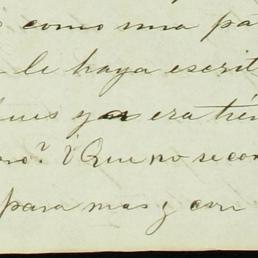 como una pa
le haya escrit
pues ya era tie
? ¿Que no se con
para mas y con